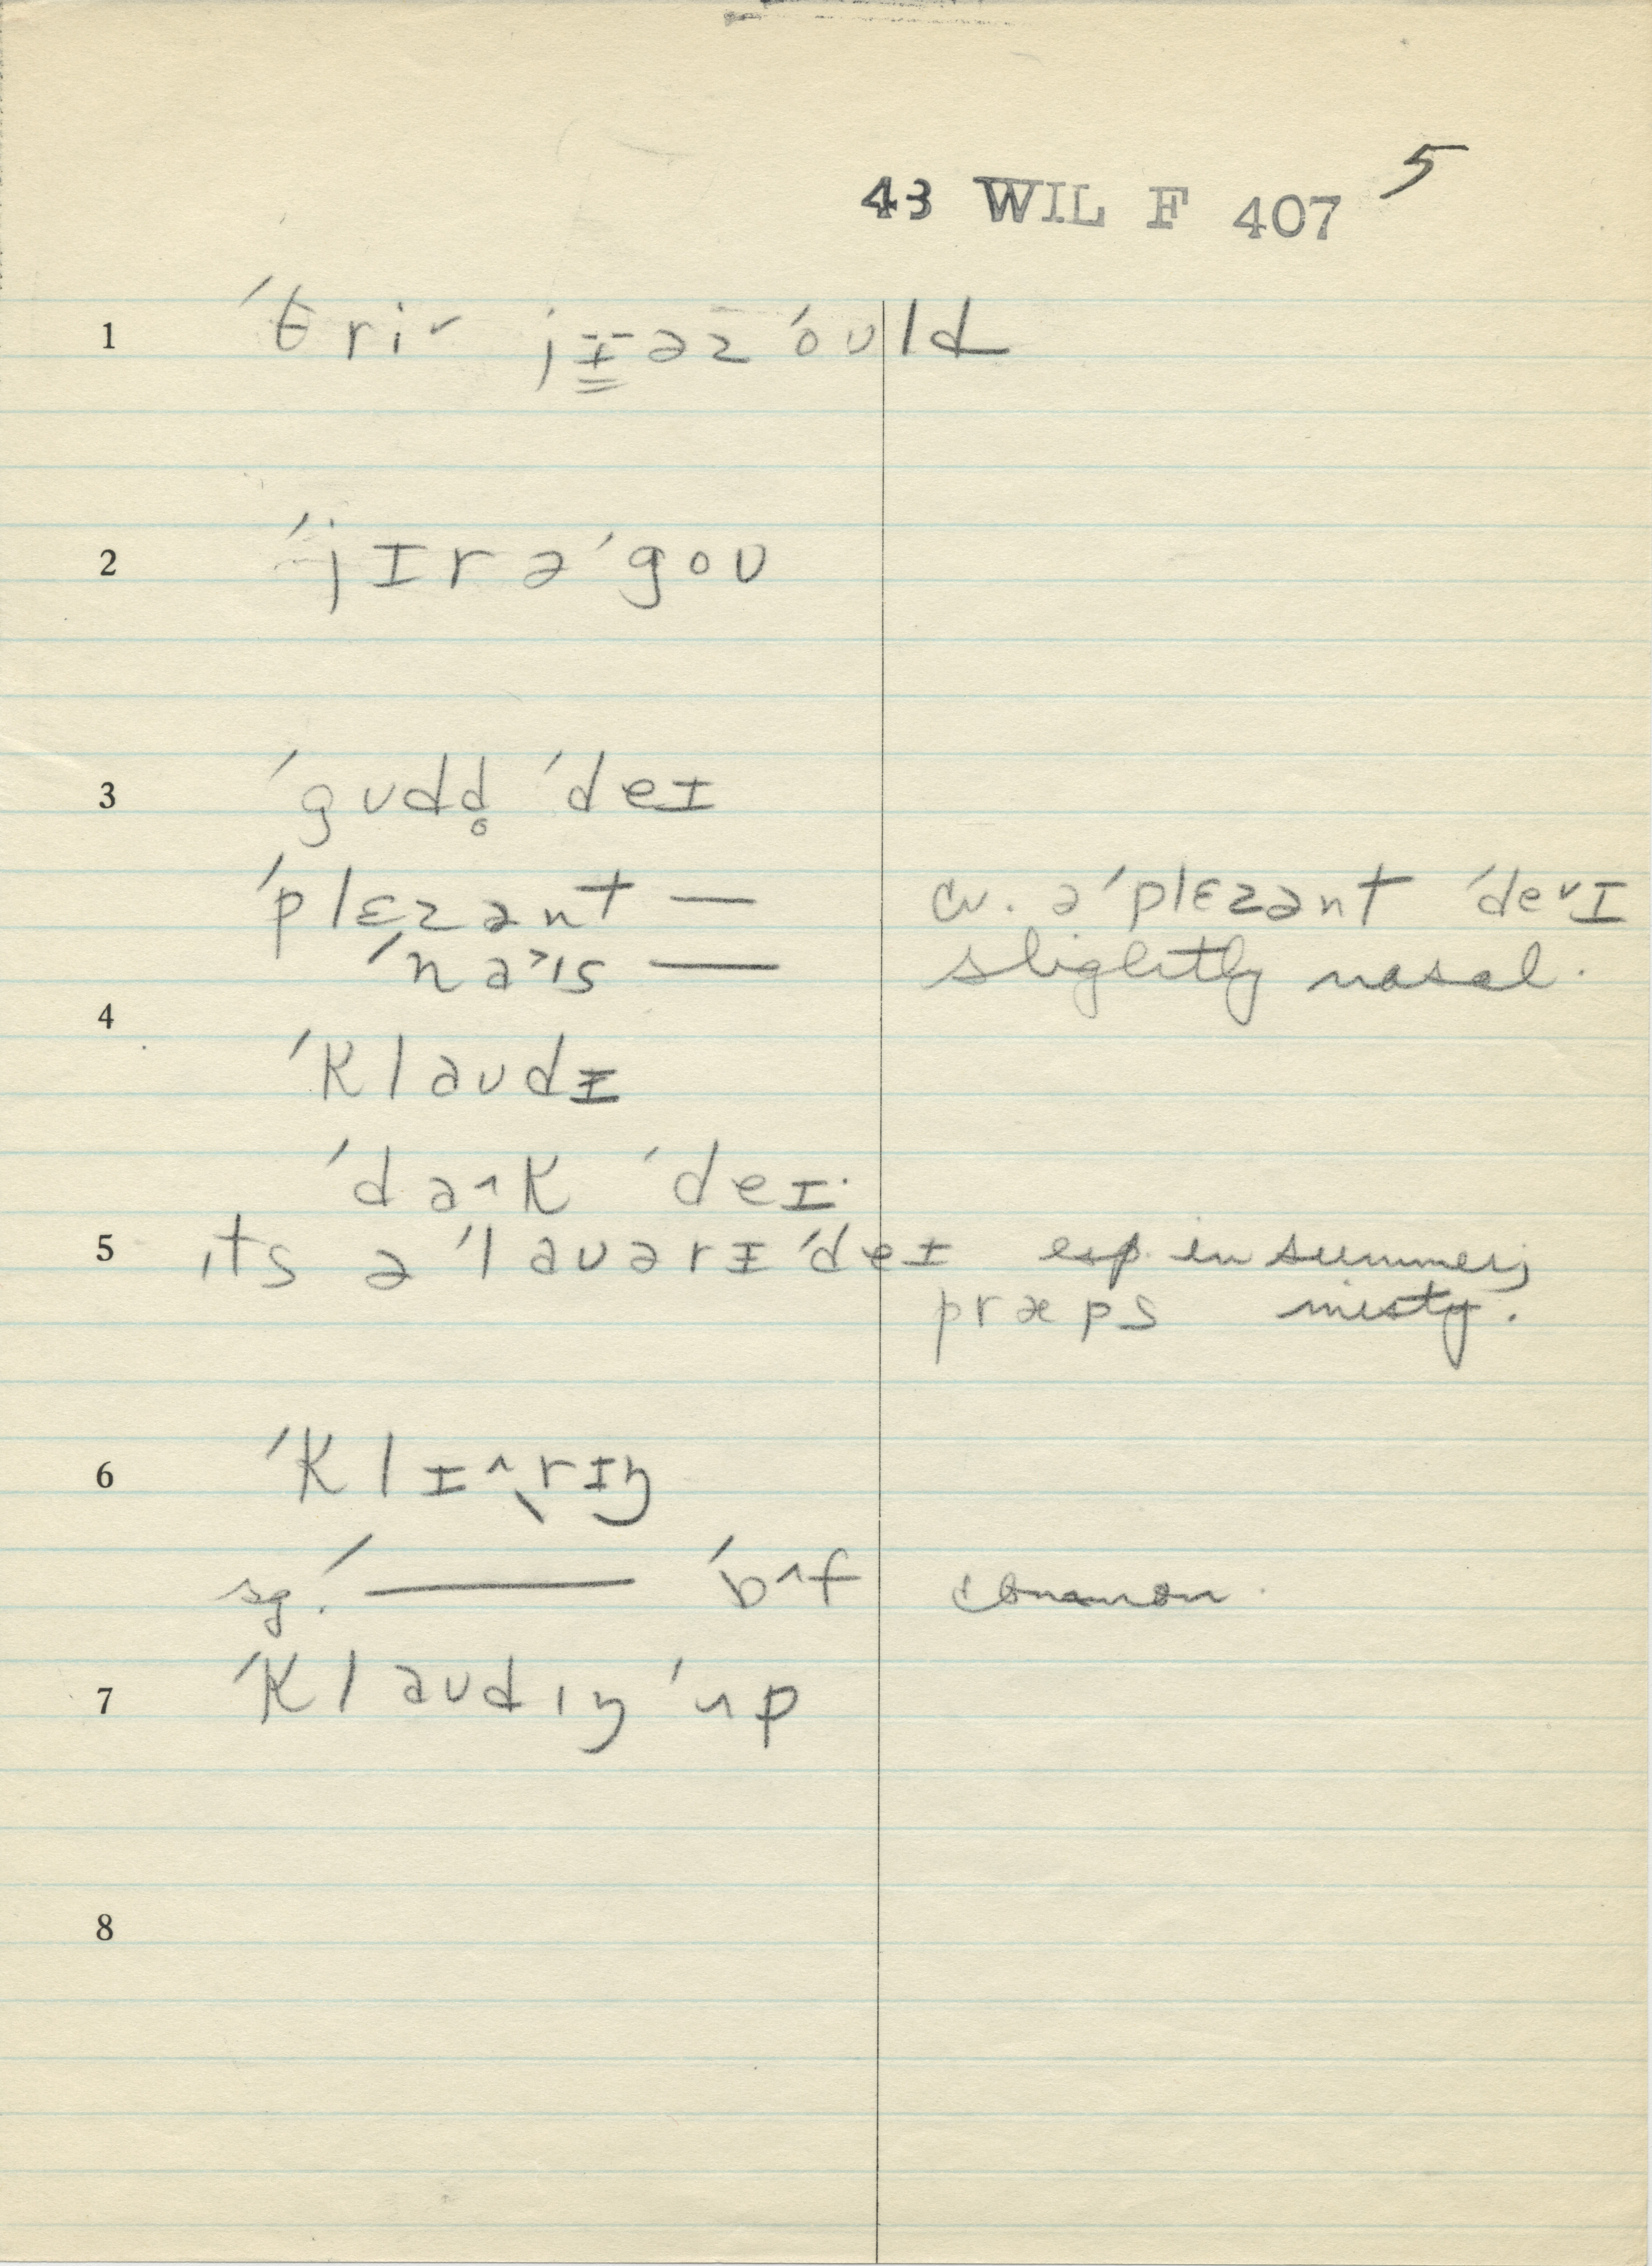 43 WIL F 407 5
1 ˈθri˅ jɪəz ˈoʊld
2 ˈjɪr əˈgoʊ
3 ˈgʊdd̥ ˈdeɪ
ˈplɛzənt — cv. əˈplɛzənt ˈde˅ɪ
ˈna˃ɪs — slightly nasal.
4
ˈklaʊdɪ
ˈda˄k ˈdeɪ.
5 ɪts ə ˈlaʊərɪ ˈdeɪ esp. in summer;
præps misty.
6 ˈklɪ˄rɪŋ
sg. ˈ—— ˈɒ˄f common.
7 ˈklaʊdɪŋ ˈʌp
8